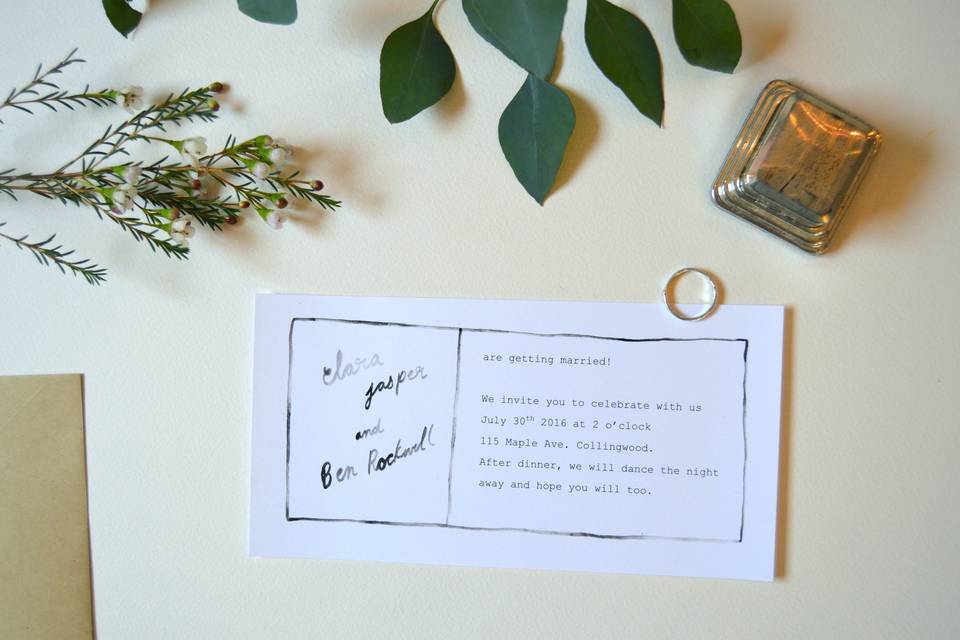 clara
jasper
and
Ben Rockwell
are getting married!
We invite you to celebrate with us
July 30th 2016 at 2 o'clock
115 Maple Ave. Collingwood.
After dinner, we will dance the night
away and hope you will too.